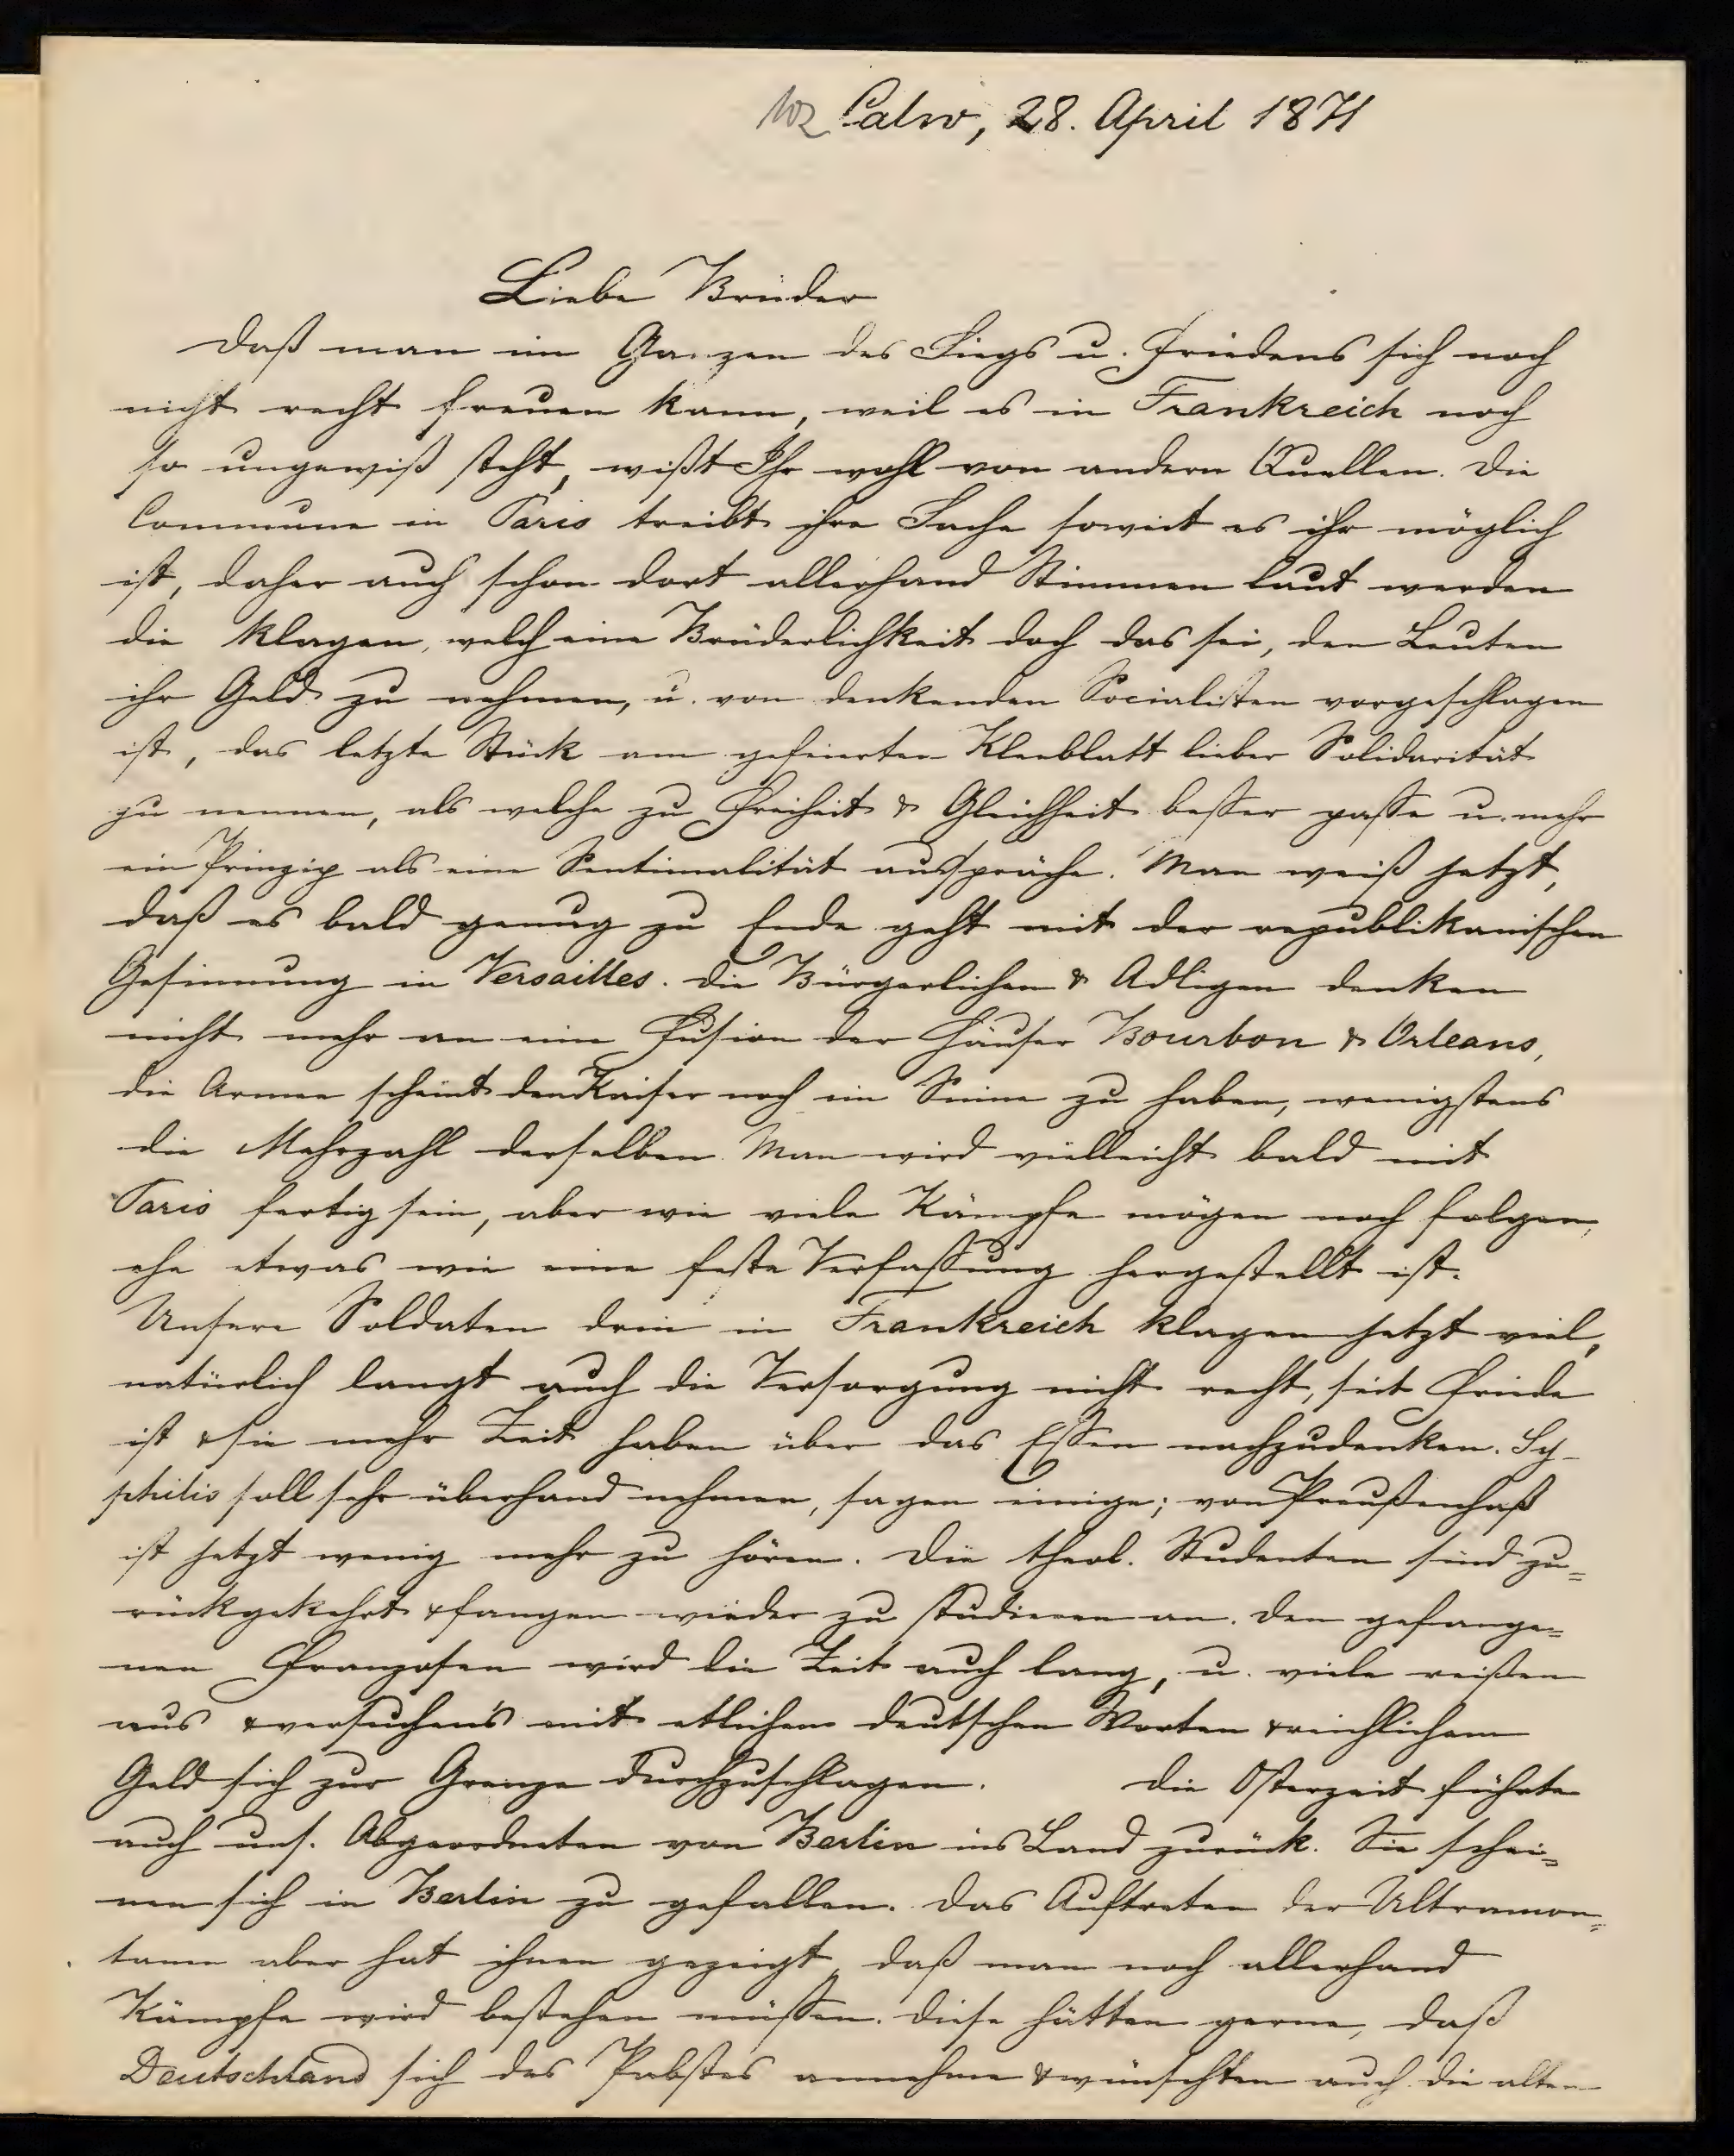 102 Calw, 28. April 1871
Liebe Brüder
Daß man im Ganzen des Siegs u. Friedens sich noch
nicht recht freuen kann, weil es in Frankreich noch
so ungewiß steht, wißt Ihr wohl von andern Quellen. Die
Commune in Paris treibt ihre Sache soweit es ihr möglich
ist, daher auch schon dort allerhand Stimmen laut werden
die klagen, welch eine Brüderlichkeit doch das sei, den Leuten
ihr Geld zu nehmen, u. von denkenden Socialisten vorgeschlagen
ist, das letzte Stück am gefeierten Kleeblatt lieber Solidarität
zu nennen, als welche zu Freiheit & Gleichheit besser passe u. mehr
ein Prinzip als eine Sentimalität ausspräche. Man weiß jetzt,
daß es bald genug zu Ende geht mit der republikanischen
Gesinnung in Versailles. Die Bürgerlichen & Adligen denken
nicht mehr an eine Fusion der Häuser Bourbon & Orleans,
die Armee scheint den Kaiser noch im Sinne zu haben, wenigstens
die Mehrzahl derselben. Man wird vielleicht bald mit
Paris fertig sein, aber wie viele Kämpfe mögen noch folgen,
ehe etwas wie eine feste Verfassung hergestellt ist.
Unsere Soldaten drin in Frankreich klagen jetzt viel,
natürlich langt auch die Versorgung nicht recht, seit Friede
ist & sie mehr Zeit haben über das Essen nachzudenken. Sy-
philis soll sehr überhand nehmen, sagen einige; von Preußenhaß
ist jetzt wenig mehr zu hören. Die theol. Studenten sind zu=
rückgekehrt & fangen wieder zu studieren an. Den gefange=
nen Franzosen wird die Zeit auch lang, u. viele reißen
aus & versuchen's mit etlichen deutschen Worten & reichlichem
Geld sich zur Grenze durchzuschlagen. Die Osterzeit führte
auch uns. Abgeordneten von Berlin ins Land zurück. Sie schei=
nen sich in Berlin zu gefallen. Das Auftreten der Ultramon=
tanen aber hat ihnen gezeigt, daß man noch allerhand
Kämpfe wird bestehen müssen. Diese hätten gerne, daß
Deutschland sich des Pabstes annehme & wünschten auch die alten